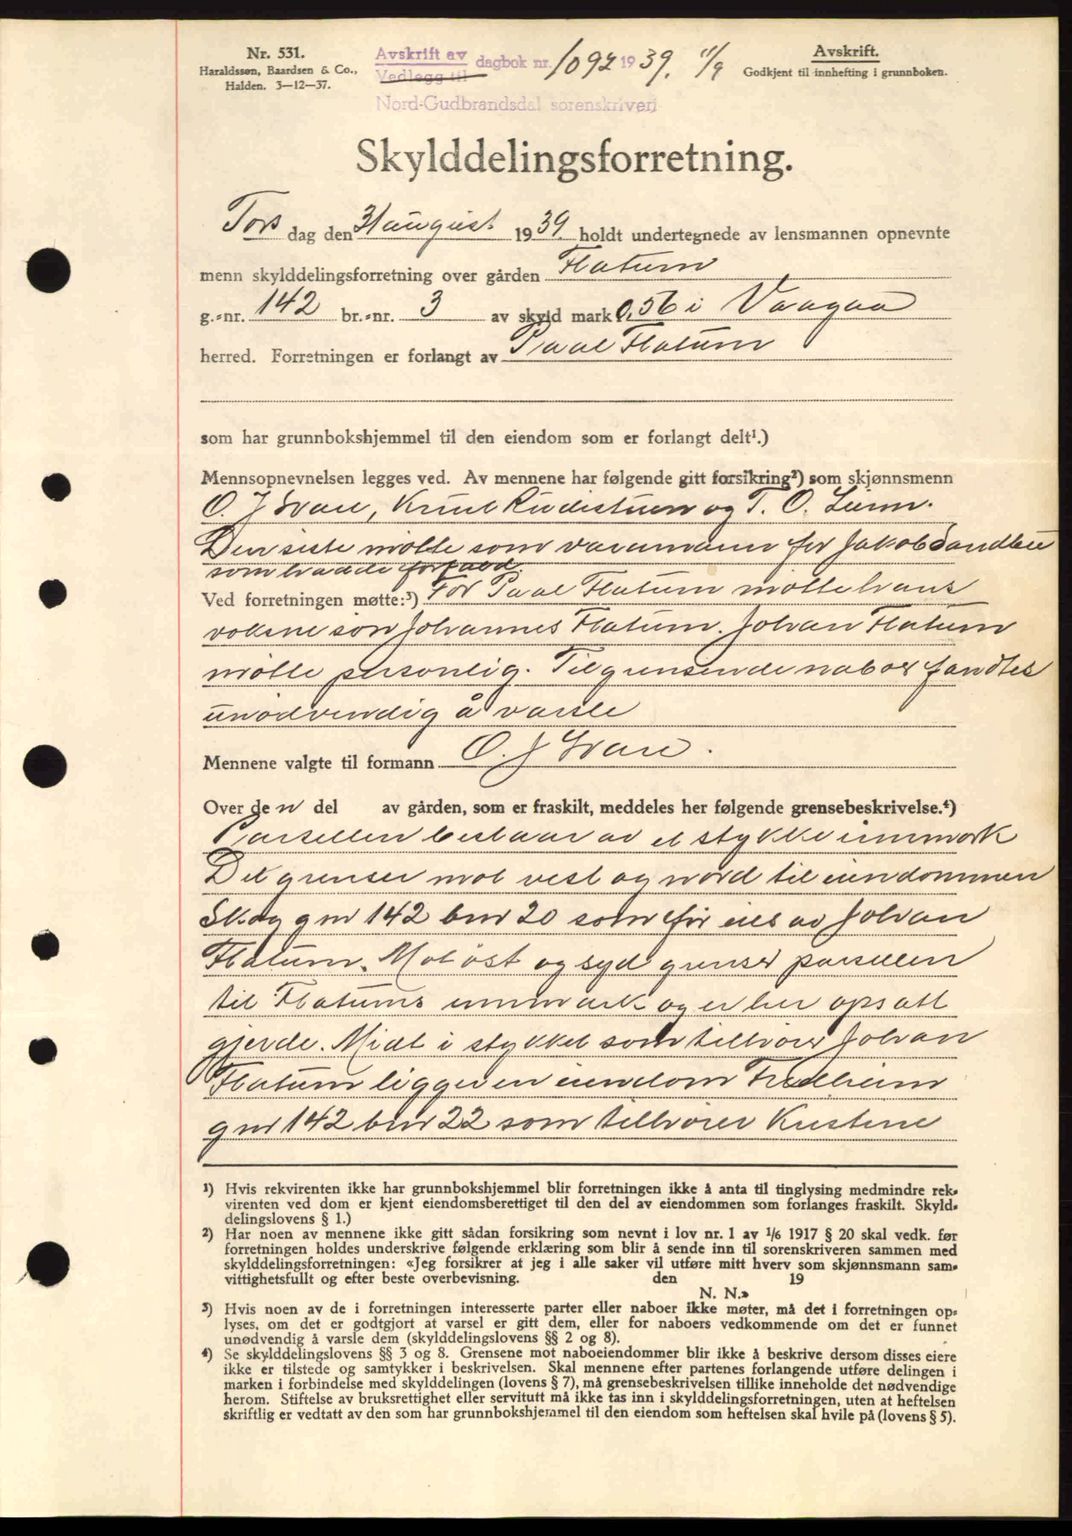 Nr. 531.
Haraldssøn, Baardsen & Co.,
Halden. 3—12—37.
Avskrift av
Vedlegg til dagbok nr. 1092 1939. 11/9
Nord-Gudbrandsdal sorenskriveri
Avskrift.
Godkjent til innhefting i grunnboken.
Skylddelingsforretning.
Tors dag den 31 august 1939. holdt undertegnede av lensmannen opnevnte
menn skylddelingsforretning over gården Flatum
g.-nr. 142 br.-nr. 3 av skyld mark 0,56 i Vaagaa
herred. Forretningen er forlangt av Paal Flatum
som har grunnbokshjemmel til den eiendom som er forlangt delt¹.)
Mennsopnevnelsen legges ved. Av mennene har følgende gitt forsikring²) som skjønnsmenn
O. J. Svare, Knut Rudistuen og T. O. Lunn.
Den siste møtte som varamann for Jakob Sandbu
som hadde forfald.
Ved forretningen møtte:³) For Paal Flatum møtte hans
voksne sön Johannes Flatum. Johan Flatum
møtte personlig. Tilgrensende naboer fandtes
unödvendig å varsle
Mennene valgte til formann O. J Svare.
Over de n del av gården, som er fraskilt, meddeles her følgende grensebeskrivelse.⁴)
Parsellen bestaar av et stykke innmark
Det grenser mot vest og nord til eiendommen
Skog gnr 142 bnr 20 som før eies av Johan
Flatum. Mot öst og syd grenser parsellen
til Flatums innmark og er her opsatt
gjerde. Midt i stykket som tilhörer Johan
Flatum ligger en eiendom Fredheim
gnr 142 bnr 22 som tilhörer Kristine
¹) Hvis rekvirenten ikke har grunnbokshjemmel blir forretningen ikke å anta til tinglysing medmindre rek-
virenten ved dom er kjent eiendomsberettiget til den del av eiendommen som forlanges fraskilt. Skyld-
delingslovens § 1.)
²) Har noen av mennene ikke gitt sådan forsikring som nevnt i lov nr. 1 av 1/6 1917 § 20 skal vedk. før
forretningen holdes underskrive følgende erklæring som blir å sende inn til sorenskriveren sammen med
skylddelingsforretningen: «Jeg forsikrer at jeg i alle saker vil utføre mitt hverv som skjønnsmann sam-
vittighetsfullt og efter beste overbevisning. den 19
N. N.»
³) Hvis noen av de i forretningen interesserte parter eller naboer ikke møter, må det i forretningen op-
lyses, om det er godtgjort at varsel er gitt dem, eller for naboers vedkommende om det er funnet
unødvendig å varsle dem (skylddelingslovens §§ 2 og 8).
⁴) Se skylddelingslovens §§ 3 og 8. Grensene mot naboeiendommer blir ikke å beskrive dersom disses eiere
ikke er tilstede og samtykker i beskrivelsen. Skal mennene efter partenes forlangende utføre delingen i
marken i forbindelse med skylddelingen (lovens § 7), må grensebeskrivelsen tillike inneholde det nødvendige
herom. Stiftelse av bruksrettighet eller servitutt må ikke tas inn i skylddelingsforretningen, uten at heftelsen
skriftlig er vedtatt av den som har grunnbokshjemmel til den eiendom som heftelsen skal hvile på (lovens § 5).